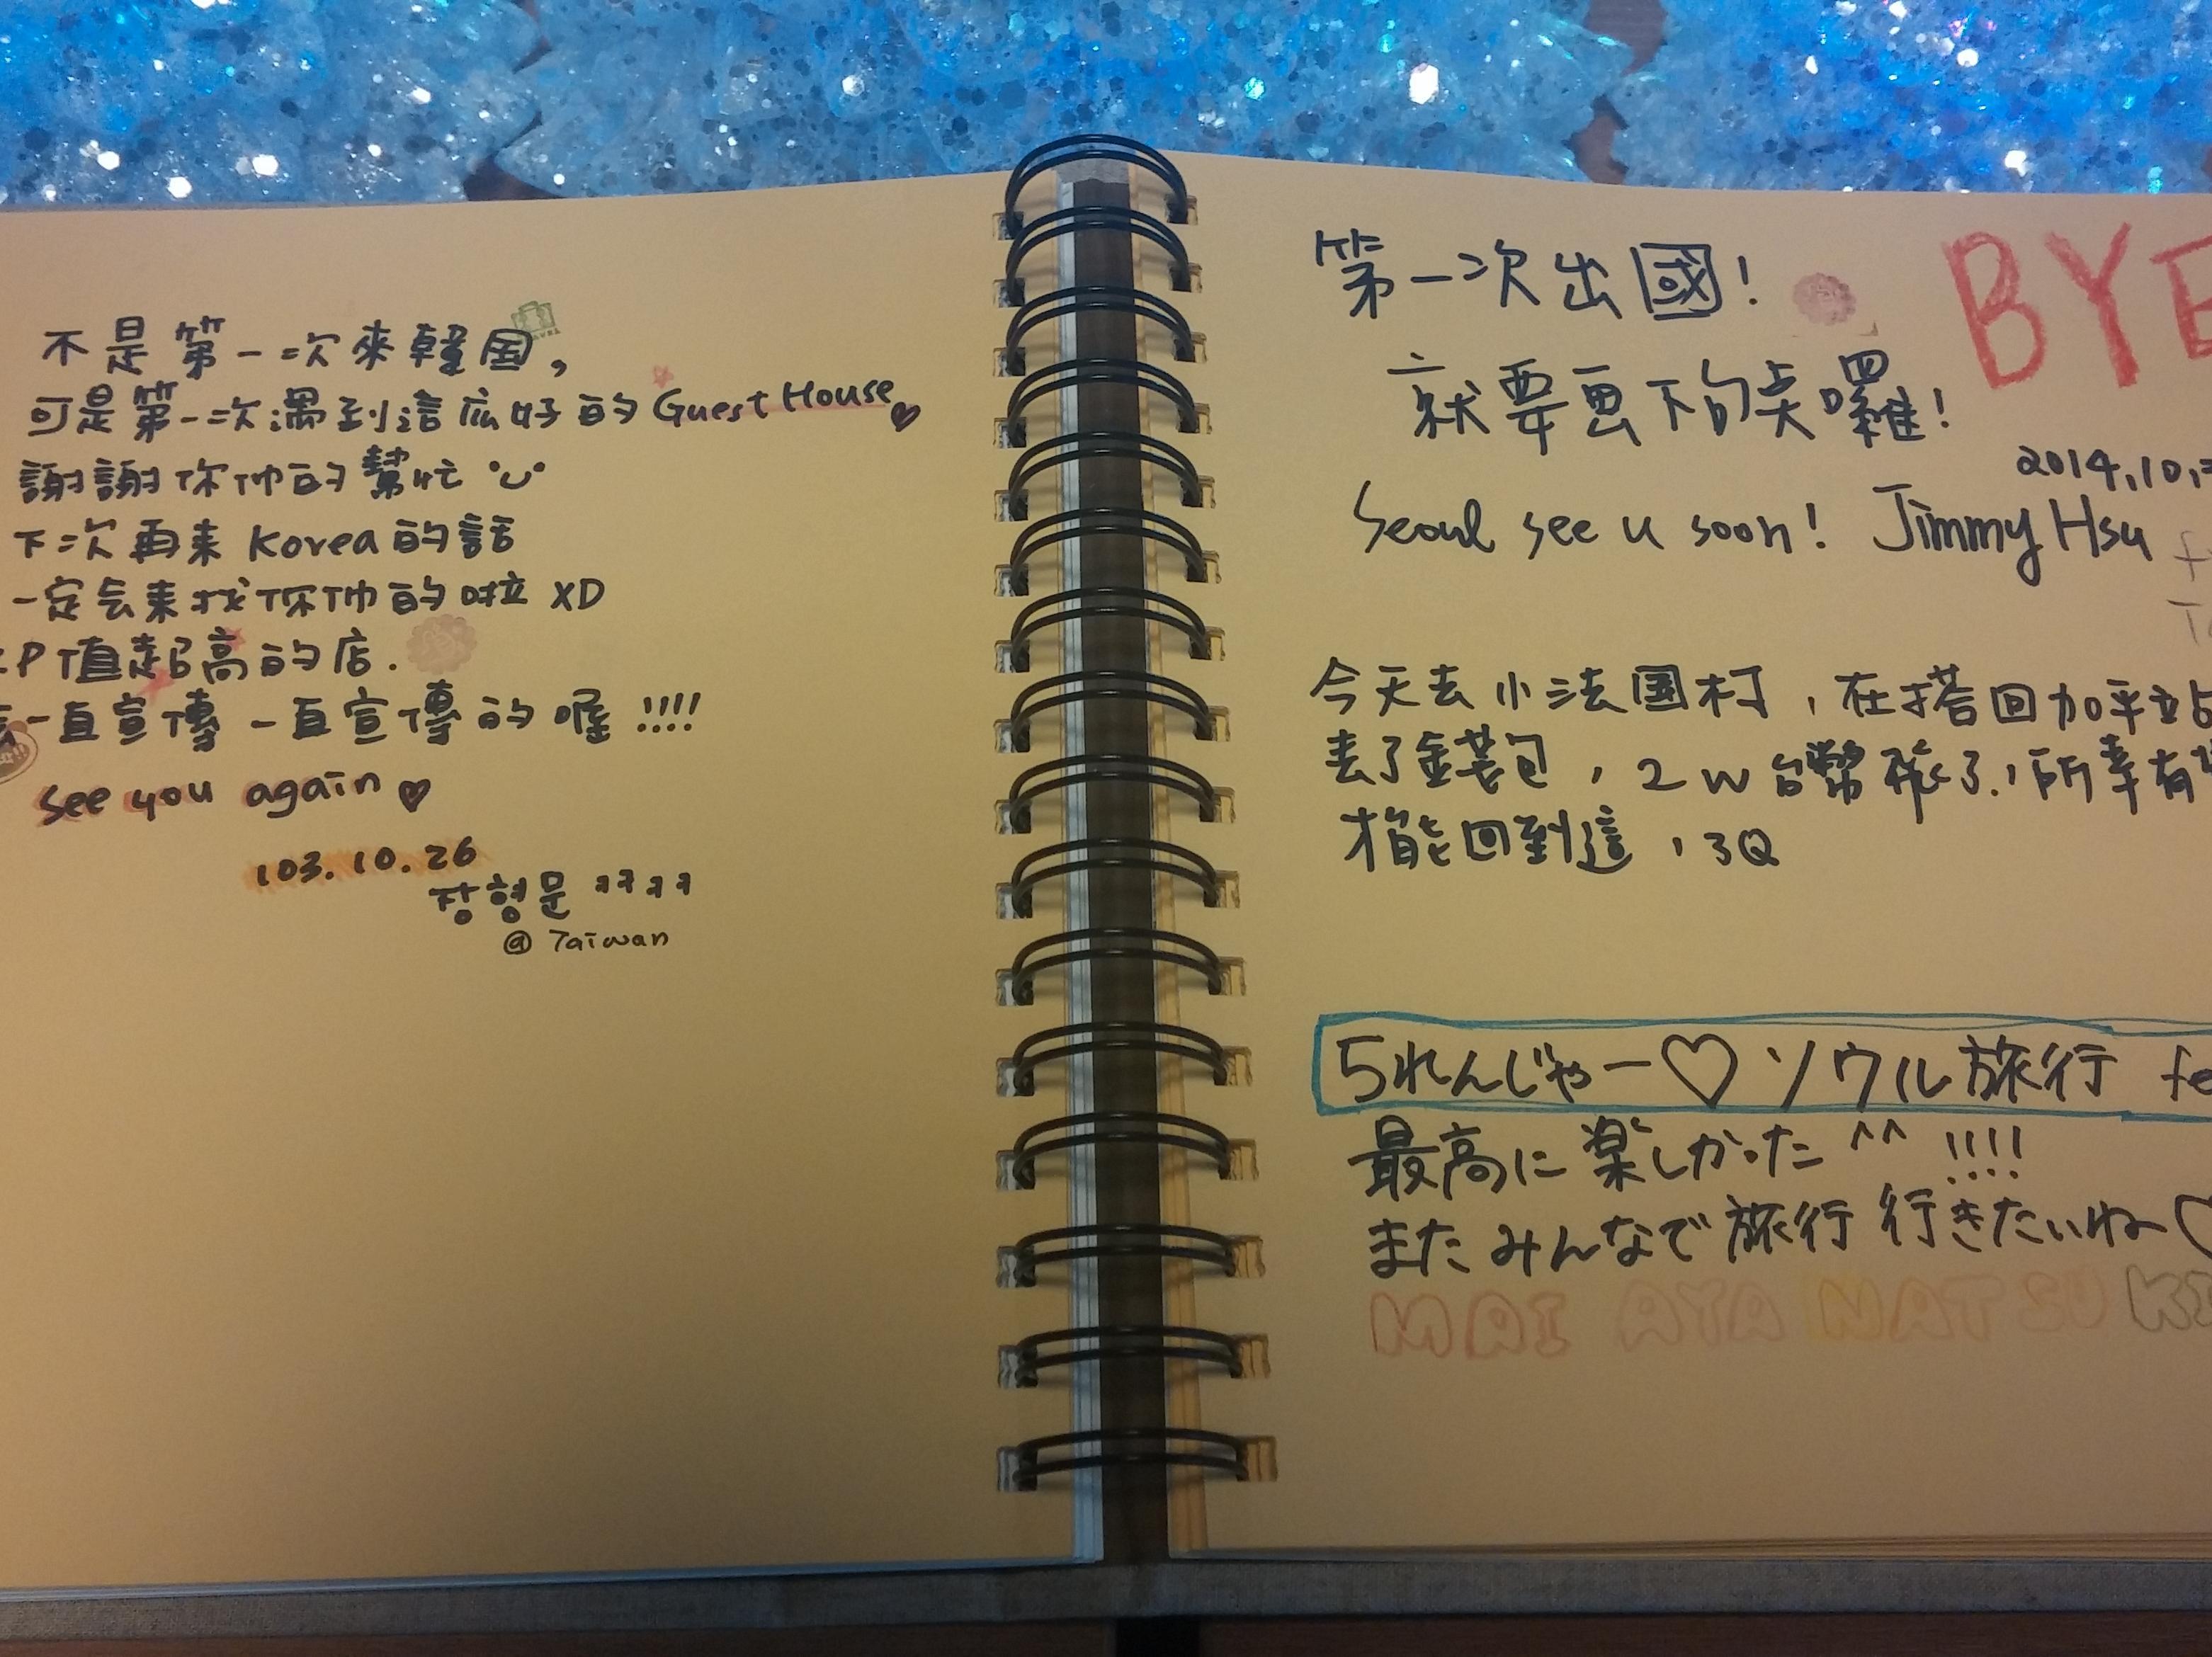 不是第一次來韓国,
可是第一次遇到這麼好的 Guest House
謝謝你們的幫忙
下次再来 Korea 的話
一定会来找你們的啦 XD
P值超高的店.
一直宣傳 一直宣傳的喔 !!!!
See you again
103.10.26
장형문 ㅋㅋㅋㅋ
@ Taiwan
第一次出國!
BYE
就要画下句点囉!
2014.10.
Seoul see u soon! Jimmy Hsu
今天去小法国村,在搭回加平站
丟了錢包,2W台幣飛了,所幸有
才能回到這,3Q
5れんじゃー♡ソウル旅行 fe
最高に楽しかった ^^ !!!!
またみんなで旅行 行きたいね♡
MAI AYA NATSU KI